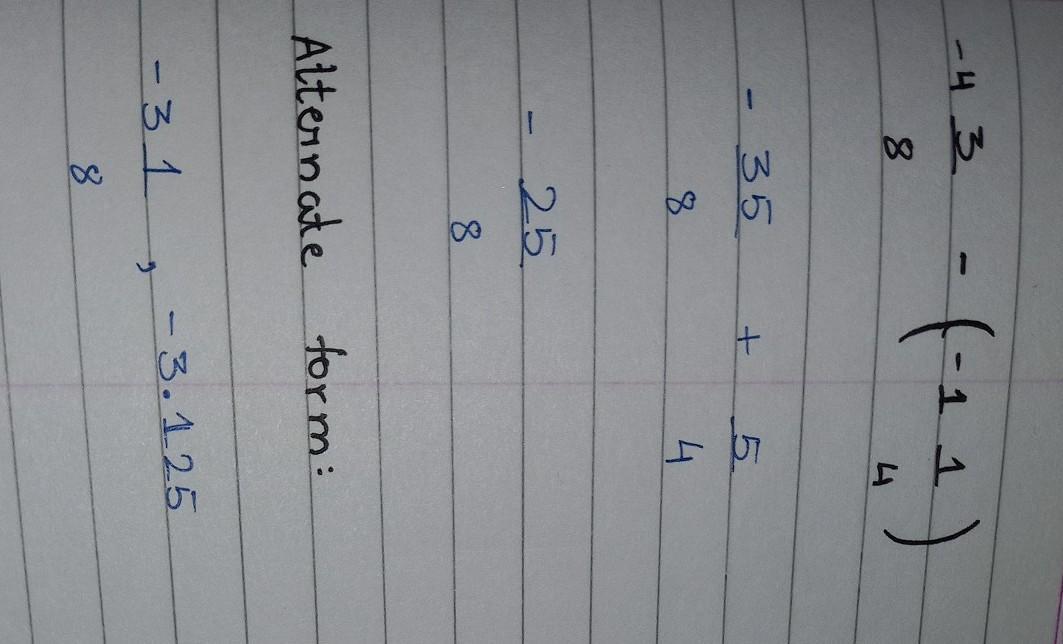 -4 3/8 - (-1 1/4)
- 35/8 + 5/4
- 25/8
Alternate form:
-3 1/8 , -3.125